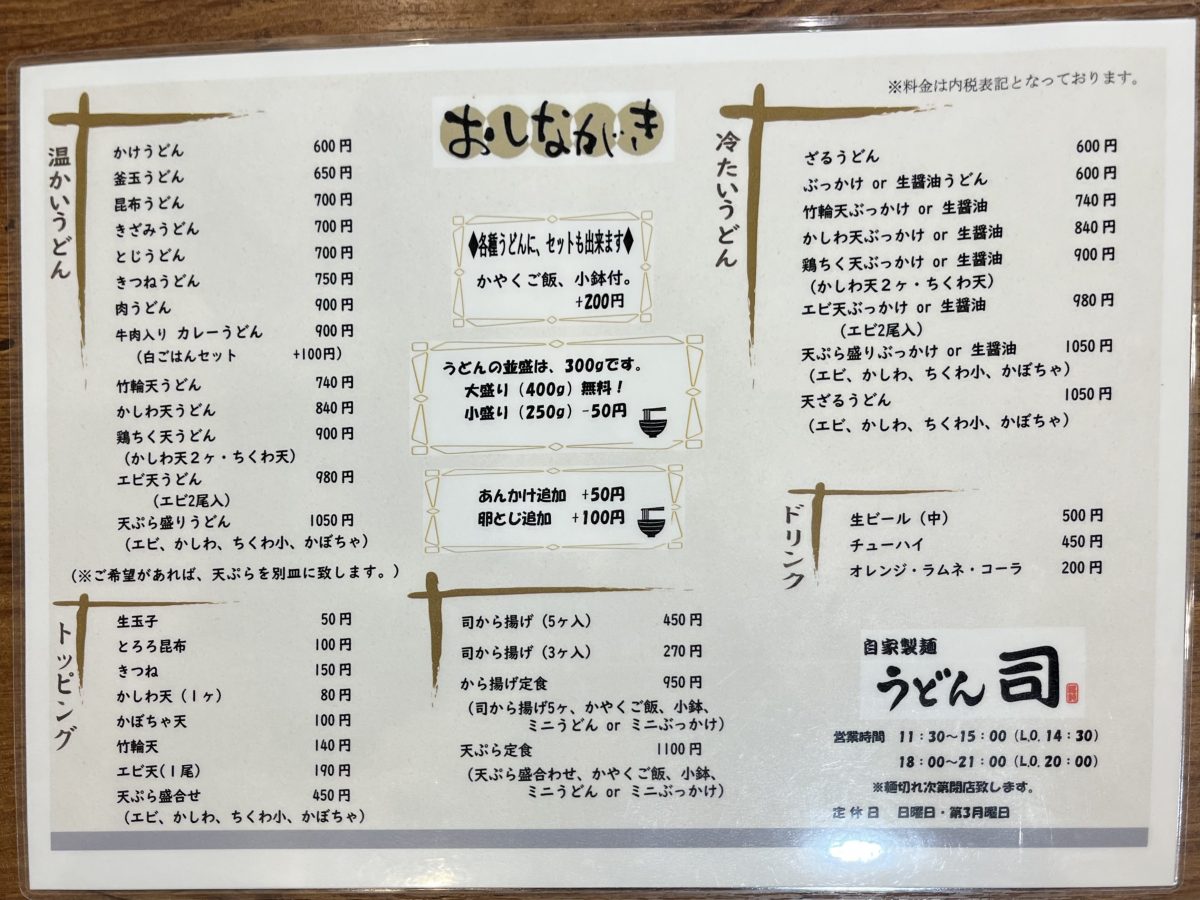 ※料金は内税表記となっております。
おしながき
温かいうどん
かけうどん 600円
釜玉うどん 650円
昆布うどん 700円
きざみうどん 700円
とじうどん 700円
きつねうどん 750円
肉うどん 900円
牛肉入り カレーうどん 900円
（白ごはんセット +100円）
竹輪天うどん 740円
かしわ天うどん 840円
鶏ちく天うどん 900円
（かしわ天２ヶ・ちくわ天）
エビ天うどん 980円
（エビ2尾入）
天ぷら盛りうどん 1050円
（エビ、かしわ、ちくわ小、かぼちゃ）
（※ご希望があれば、天ぷらを別皿に致します。）
トッピング
生玉子 50円
とろろ昆布 100円
きつね 150円
かしわ天（１ヶ） 80円
かぼちゃ天 100円
竹輪天 140円
エビ天(１尾） 190円
天ぷら盛合せ 450円
（エビ、かしわ、ちくわ小、かぼちゃ）
◆各種うどんに、セットも出来ます◆
かやくご飯、小鉢付。
+200円
うどんの並盛は、300gです。
大盛り（400g）無料！
小盛り（250g）-50円
あんかけ追加 +50円
卵とじ追加 +100円
司から揚げ（5ヶ入） 450円
司から揚げ（3ヶ入） 270円
から揚げ定食 950円
（司から揚げ5ヶ、かやくご飯、小鉢、
ミニうどん or ミニぶっかけ）
天ぷら定食 1100円
（天ぷら盛合わせ、かやくご飯、小鉢、
ミニうどん or ミニぶっかけ）
冷たいうどん
ざるうどん 600円
ぶっかけ or 生醤油うどん 600円
竹輪天ぶっかけ or 生醤油 740円
かしわ天ぶっかけ or 生醤油 840円
鶏ちく天ぶっかけ or 生醤油 900円
（かしわ天２ヶ・ちくわ天）
エビ天ぶっかけ or 生醤油 980円
（エビ2尾入）
天ぷら盛りぶっかけ or 生醤油 1050円
（エビ、かしわ、ちくわ小、かぼちゃ）
天ざるうどん 1050円
（エビ、かしわ、ちくわ小、かぼちゃ）
ドリンク
生ビール（中） 500円
チューハイ 450円
オレンジ・ラムネ・コーラ 200円
自家製麺
うどん 司
営業時間 11：30～15：00（L.O. 14：30）
18：00～21：00（L.O. 20：00）
※麺切れ次第閉店致します。
定休日 日曜日・第3月曜日